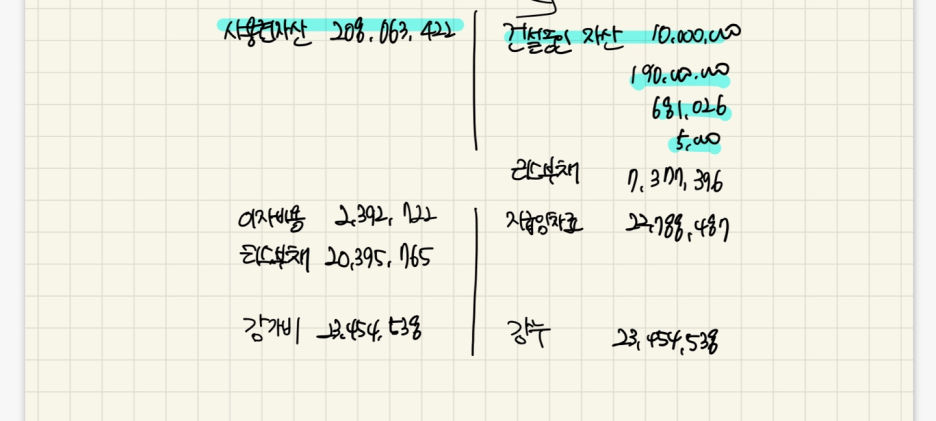 사용권자산 208,063,422 건설중인 자산 10,000,000
190,000,000
681,026
5,000
리스부채 7,377,396
이자비용 2,392,722 지급임차료 22,788,487
리스부채 20,395,765
감가비 23,454,538 감누 23,454,538